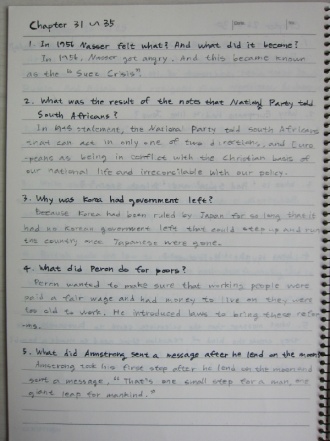 Chapter 31 ~ 35
Date
No
1. In 1956 Nasser felt what? And what did it become?
In 1956, Nasser got angry. And this became known
as the "Suez Crisis".
2. What was the result of the notes that National Party told
South Africans?
In statement, the National Party told south Africans
that can act in only one of two directions, and
as being in conflict with the Christian basis of
our national life and irreconcilable with our policy.
3. Why was Korea had government left?
Because Korea had been ruled by Japan for so long that it
had no Korean government left that could step up and run
the country once Japanese were gone.
4. What did Peron do for poors?
Peron wanted to make sure that working people were
paid a fair wage and had money to live on they were
too old to work. He introduced laws to bring these refor
-ms.
5. What did Armstrong sent a message after he land on the moon?
Armstrong took his first step after he land on the moon and
sent a message, "That's one small step for a man, one
giant leap for mankind."